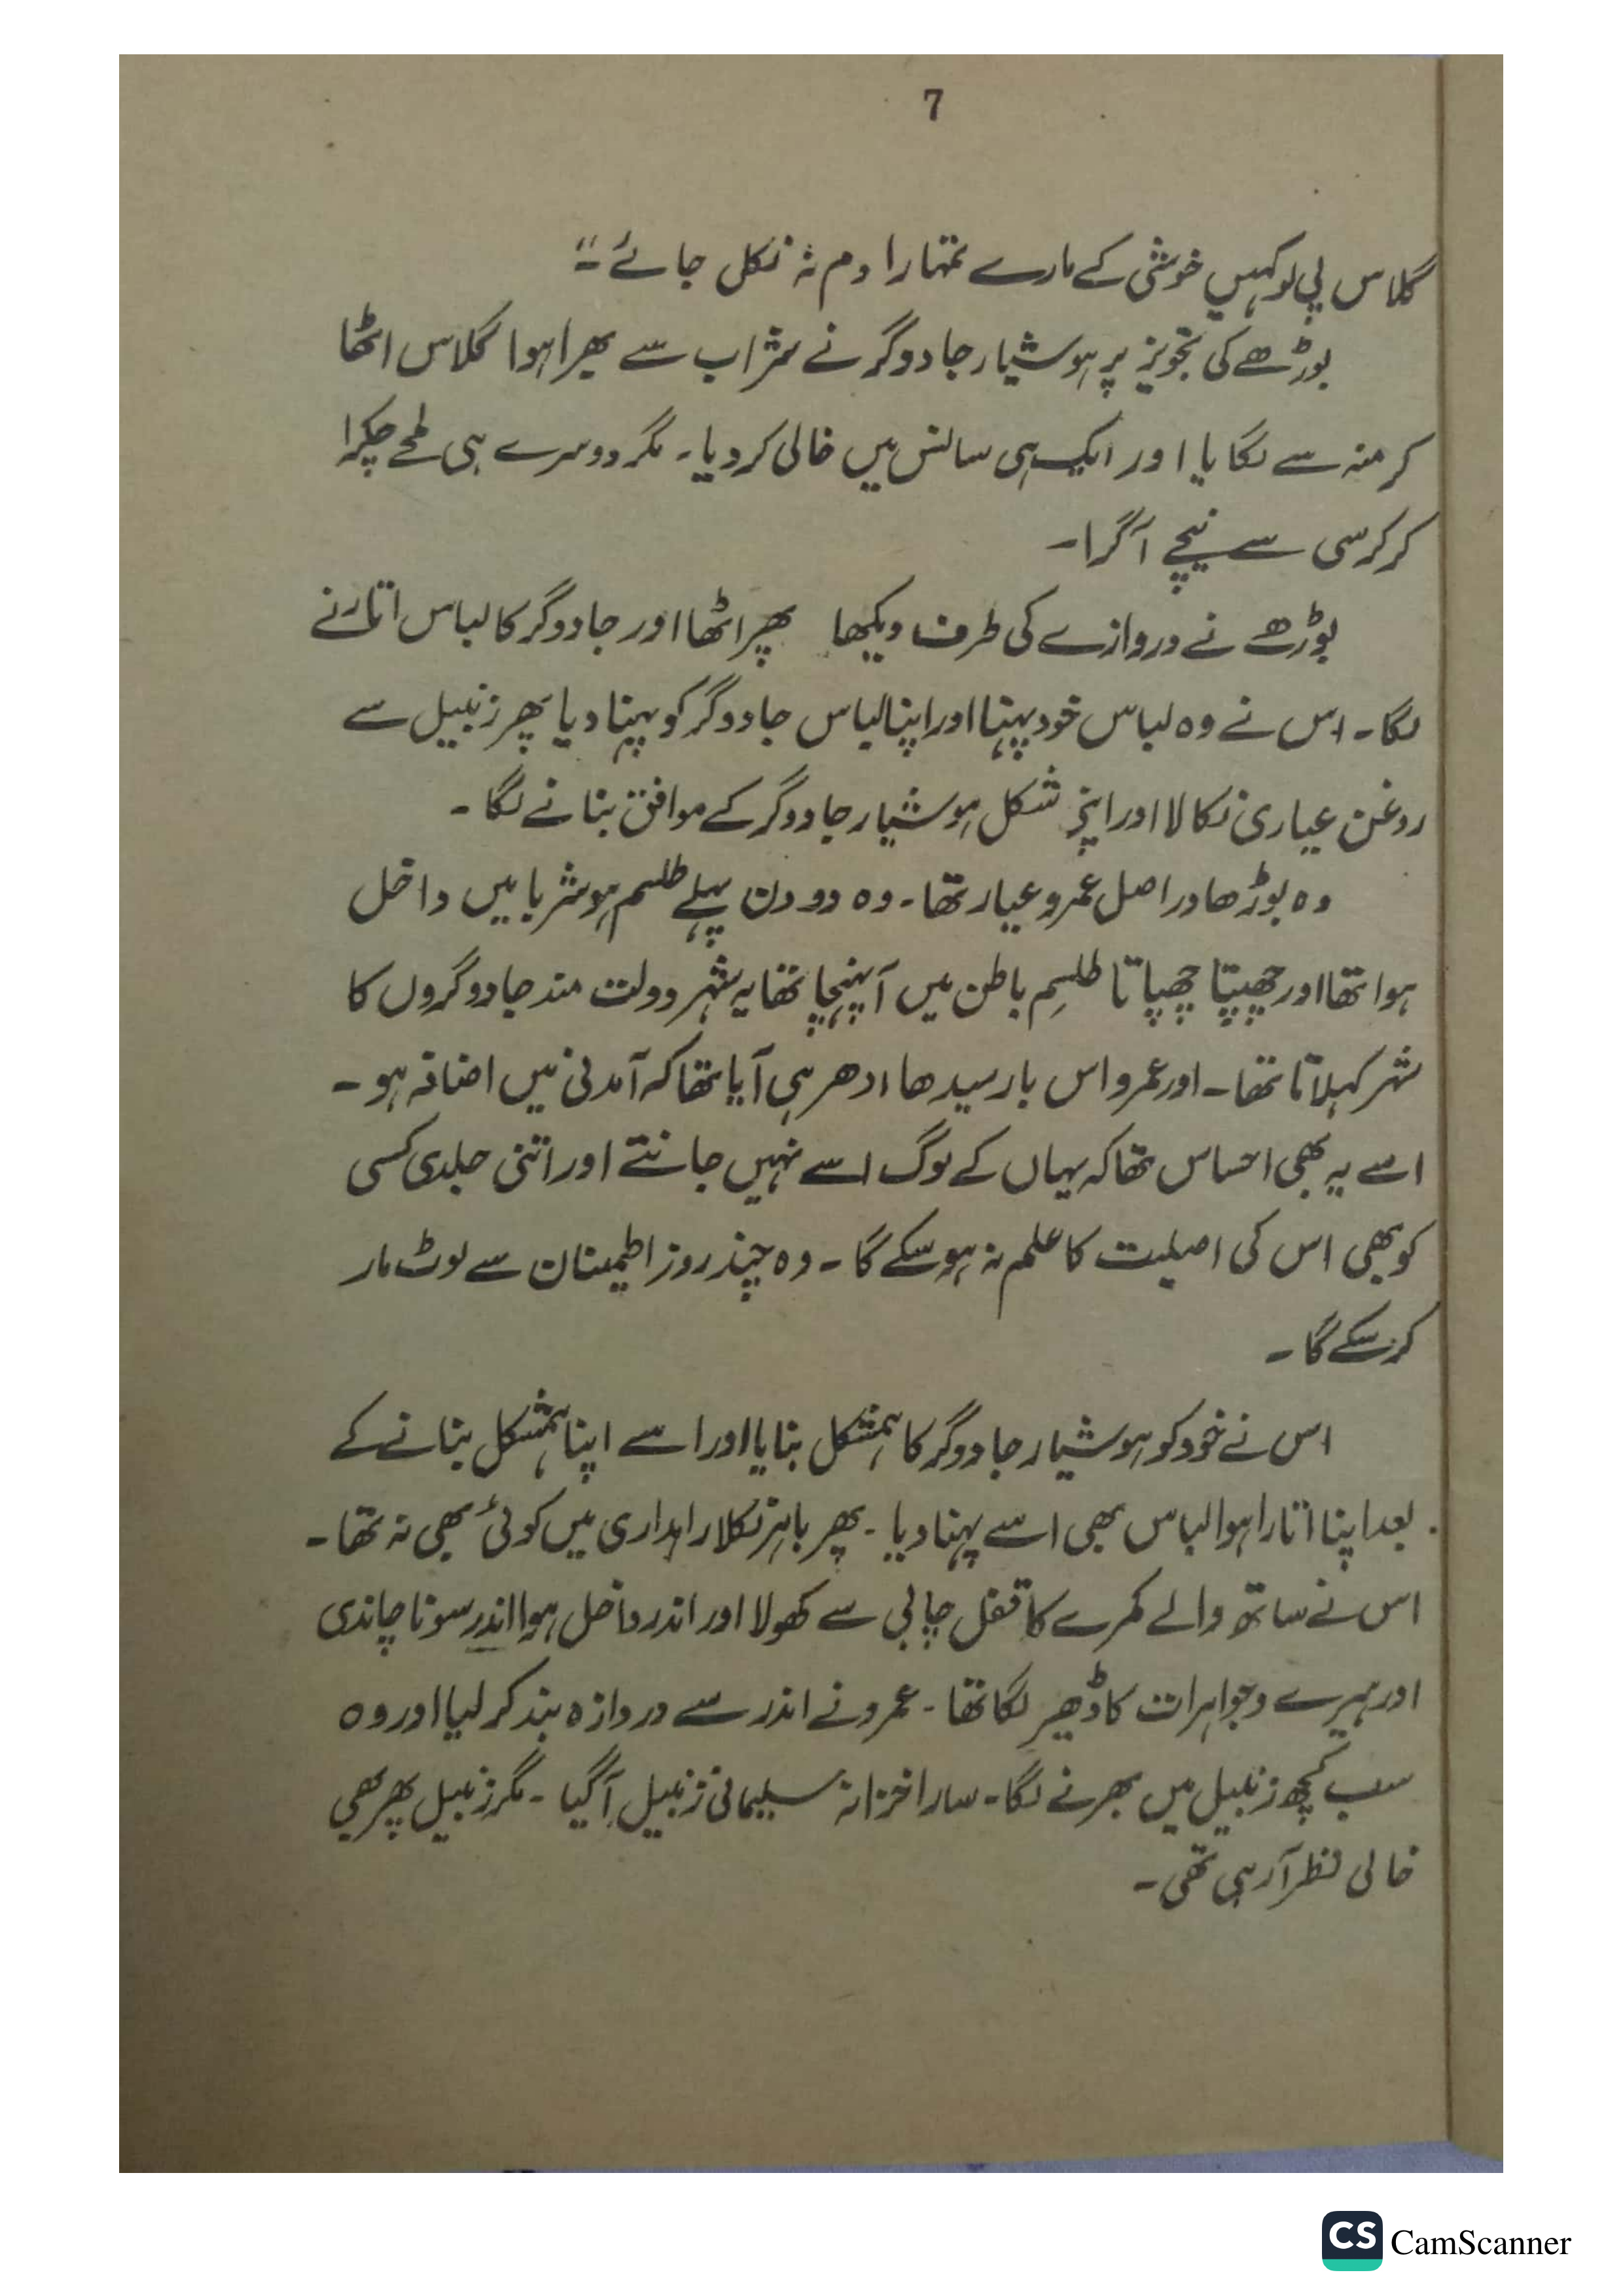 7
گلاس پی لو کہیں خوشی کے مارے تمہارا دم نہ نکل جائے۔"
بوڑھے کی تجویز پر ہوشیار جادوگر نے شراب سے بھرا ہوا گلاس اٹھا
کر منہ سے لگایا اور ایک ہی سانس میں خالی کر دیا۔ مگر دوسرے ہی لمحے چکرا
کر کرسی سے نیچے آگرا۔
بوڑھے نے دروازے کی طرف دیکھا پھر اٹھا اور جادوگر کا لباس اتارنے
لگا۔ اس نے وہ لباس خود پہنا اور اپنا لباس جادوگر کو پہنا دیا پھر زنبیل سے
روغن عیاری نکالا اور اپنی شکل ہوشیار جادوگر کے موافق بنانے لگا۔
وہ بوڑھا دراصل عمرو عیار تھا۔ وہ دو دن پہلے طلسم ہوشربا میں داخل
ہوا تھا اور چھپتا چھپاتا طلسمِ باطن میں آپہنچا تھا یہ شہر دولت مند جادوگروں کا
شہر کہلاتا تھا۔ اور عمرو اس بار سیدھا ادھر ہی آیا تھا کہ آمدنی میں اضافہ ہو۔
اسے یہ بھی احساس تھا کہ یہاں کے لوگ اسے نہیں جانتے اور اتنی جلدی کسی
کو بھی اس کی اصلیت کا علم نہ ہو سکے گا۔ وہ چند روز اطمینان سے لوٹ مار
کر سکے گا۔
اس نے خود کو ہوشیار جادوگر کا ہمشکل بنایا اور اسے اپنا ہمشکل بنانے کے
بعد اپنا اتارا ہوا لباس بھی اسے پہنا دیا۔ پھر باہر نکلا راہداری میں کوئی بھی نہ تھا۔
اس نے ساتھ والے کمرے کا قفل چابی سے کھولا اور اندر داخل ہوا اندر سونا چاندی
اور ہیرے وجواہرات کا ڈھیر لگا تھا۔ عمرو نے اندر سے دروازہ بند کر لیا اور وہ
سب کچھ زنبیل میں بھرنے لگا۔ سارا خزانہ سلیمانی زنبیل آگیا۔ مگر زنبیل پھر بھی
خالی نظر آرہی تھی۔
CS CamScanner